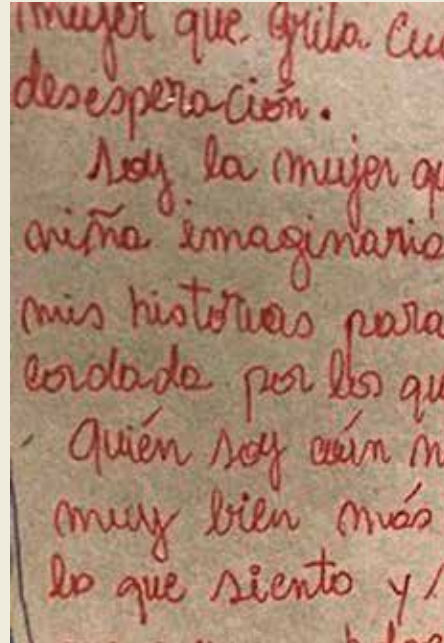 mujer que grita cu
desesperación.
Soy la mujer q
niña imaginaria
mis historias para
cordada por los qu
Quién soy aún n
muy bien más
lo que siento y